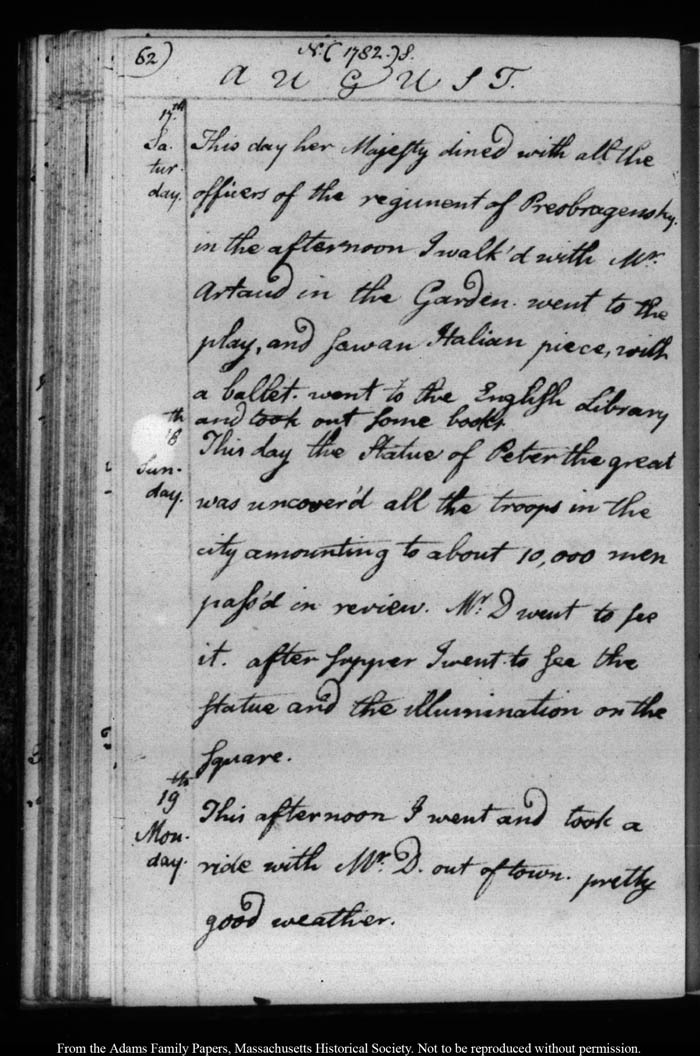 62)
N.( 1782.)S.
AUGUST.
17.th
Sa.
tur.
day.
This day her Majesty dined with all the
officers of the regiment of Preobragensky.
in the afternoon I walk'd with Mr.
Artaud in the Garden. went to the
play, and saw an Italian piece, with
a ballet. went to the English Library
and took out some books.
th
18
Sun-
day.
This day the Statue of Peter the great
was uncover'd all the troops in the
city amounting to about 10,000 men
pass'd in review. Mr. D went to see
it. after supper I went to see the
statue and the illumination on the
square.
th
19
Mon-
day.
This afternoon I went and took a
ride with Mr. D. out of town. pretty
good weather.
From the Adams Family Papers, Massachusetts Historical Society. Not to be reproduced without permission.